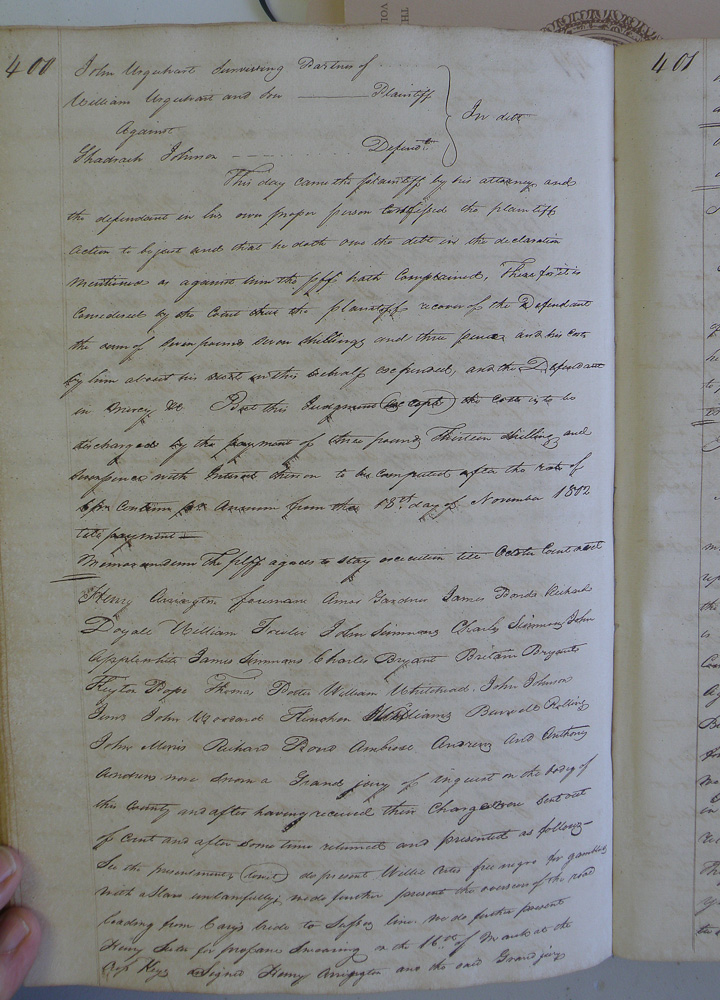 TH
VOL
400
401
John Urquhart Surviving Partner of
William Urquhart and Son — Plaintiff
Against
In debt
Shadrach Johnson - - - - Defendt.
This day came the plaintiff by his attorney and
the defendant in his own proper person the plaintiffs
action to be just and that he doth owe the debt in the declaration
mentioned as against him the plff hath Complained, Therefore it is
Considered by the Court that the plaintiff recover of the Defendant
the sum of seven pounds seven shillings and three pence and his costs
by him about his suit in this behalf expended, and the Defendant
in mercy &c But this Judgment the costs is to be
discharged by the payment of three pounds Thirteen shillings and
sevenpence with Interest thereon to be Computed after the rate of
Centum per Annum from the 18th. day of November 1802
till payment —
Memorandum the plff agrees to stay execution till Court next
Henry Arrington foreman Amos Gardner James Bonds Richard
Doyale William Fowler John Simmons Charles Simmons John
Applewhite James Simmons Charles Bryant Britain Bryant
Pope Thomas William Whitehead John Johnson
John Woodard Williams Burwell Rollings
John Morris Richard Pond Ambrose Andrews and Anthony
Andrews were sworn a Grand jury of inquest on the body of
this County and after having received their Charge were sent out
of Court and after some time returned and presented as follows —
We the presentments do present Willie free negro for gambling
with a Slave unlawfully, we do further present the overseer of the road
leading from Cary's bridge to Sussex line we do further present
Henry for profane Swearing on the 16th of March at the
Keys Signed Henry Arrington and the said Grand jury